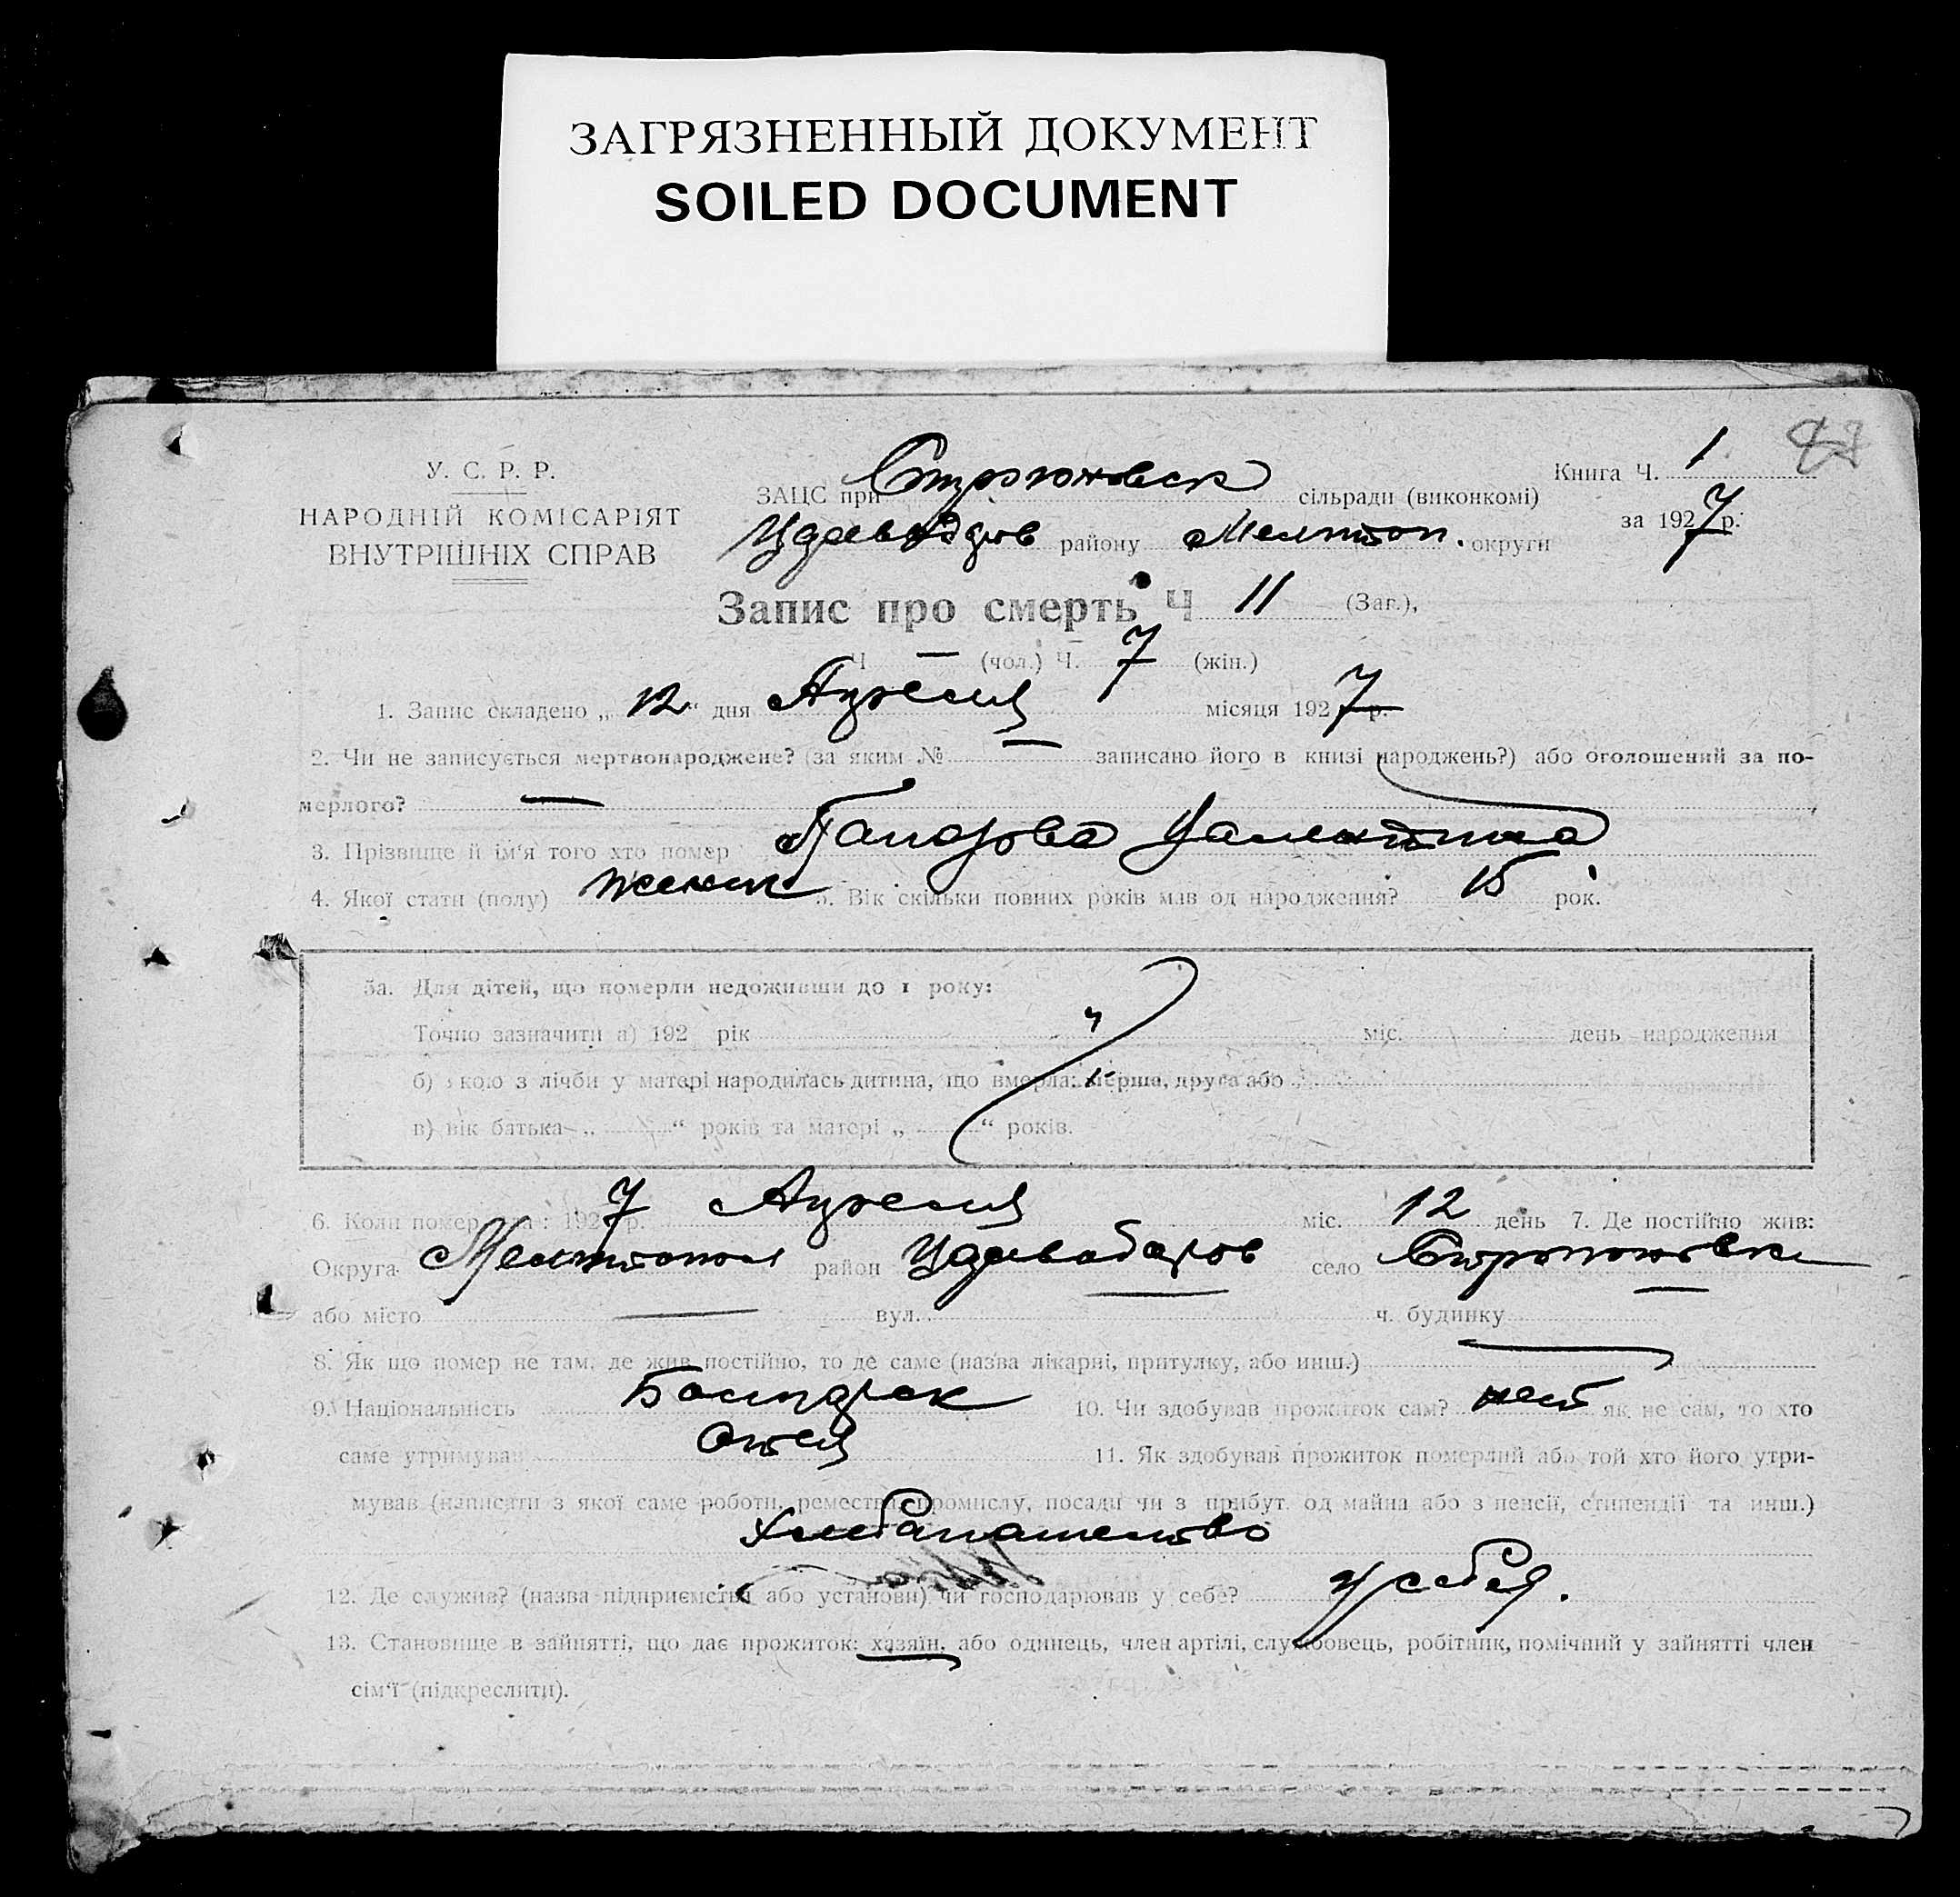 ЗАГРЯЗНЕННЫЙ ДОКУМЕНТ
SOILED DOCUMENT
У. С. Р. Р.
НАРОДНІЙ КОМІСАРІЯТ
ВНУТРІШНІХ СПРАВ
ЗАЦС при сільради (виконкомі)
району Мелитоп. округи
Книга Ч. 1
за 1927 р.
Запис про смерть Ч 11 (Заг.),
Ч — (чол.) Ч. 7 (жін.)
1. Запис складено „ 12 “ дня Апреля місяця 1927 р.
2. Чи не записується мертвонароджене? (за яким № — записано його в книзі народжень?) або оголошений за по-
мерлого? —
3. Прізвище й ім'я того хто помер Валентина
4. Якої стати (полу) женск 5. Вік скільки повних років мав од народження? 15 рок.
5а. Для дітей, що померли недоживши до 1 року:
Точно зазначити а) 192 рік міс. день народження
б) якою з лічби у матері народилась дитина, що вмерла: перша, друга або
в) вік батька „ “ років та матері „ “ років.
6. Коли помер 1927 р. Апреля міс. 12 день 7. Де постійно жив:
Округа Мелитопол район село
або місто — вул. ч. будинку
8. Як що помер не там, де жив постійно, то де саме (назва лікарні, притулку, або инш.)
9. Національність 10. Чи здобував прожиток сам? нет як не сам, то хто
саме утримував Отец 11. Як здобував прожиток померлий або той хто його утри-
мував (написати з якої саме роботи, ремества, промислу, посади чи з прибут. од майна або з пенсії, стипендії та инш.)
Хлебопашество
12. Де служив? (назва підприємства або установи) чи господарював у себе? у себя.
13. Становище в зайнятті, що дає прожиток: хазяїн, або одинець, член артілі, службовець, робітник, помічний у зайнятті член
сім'ї (підкреслити).